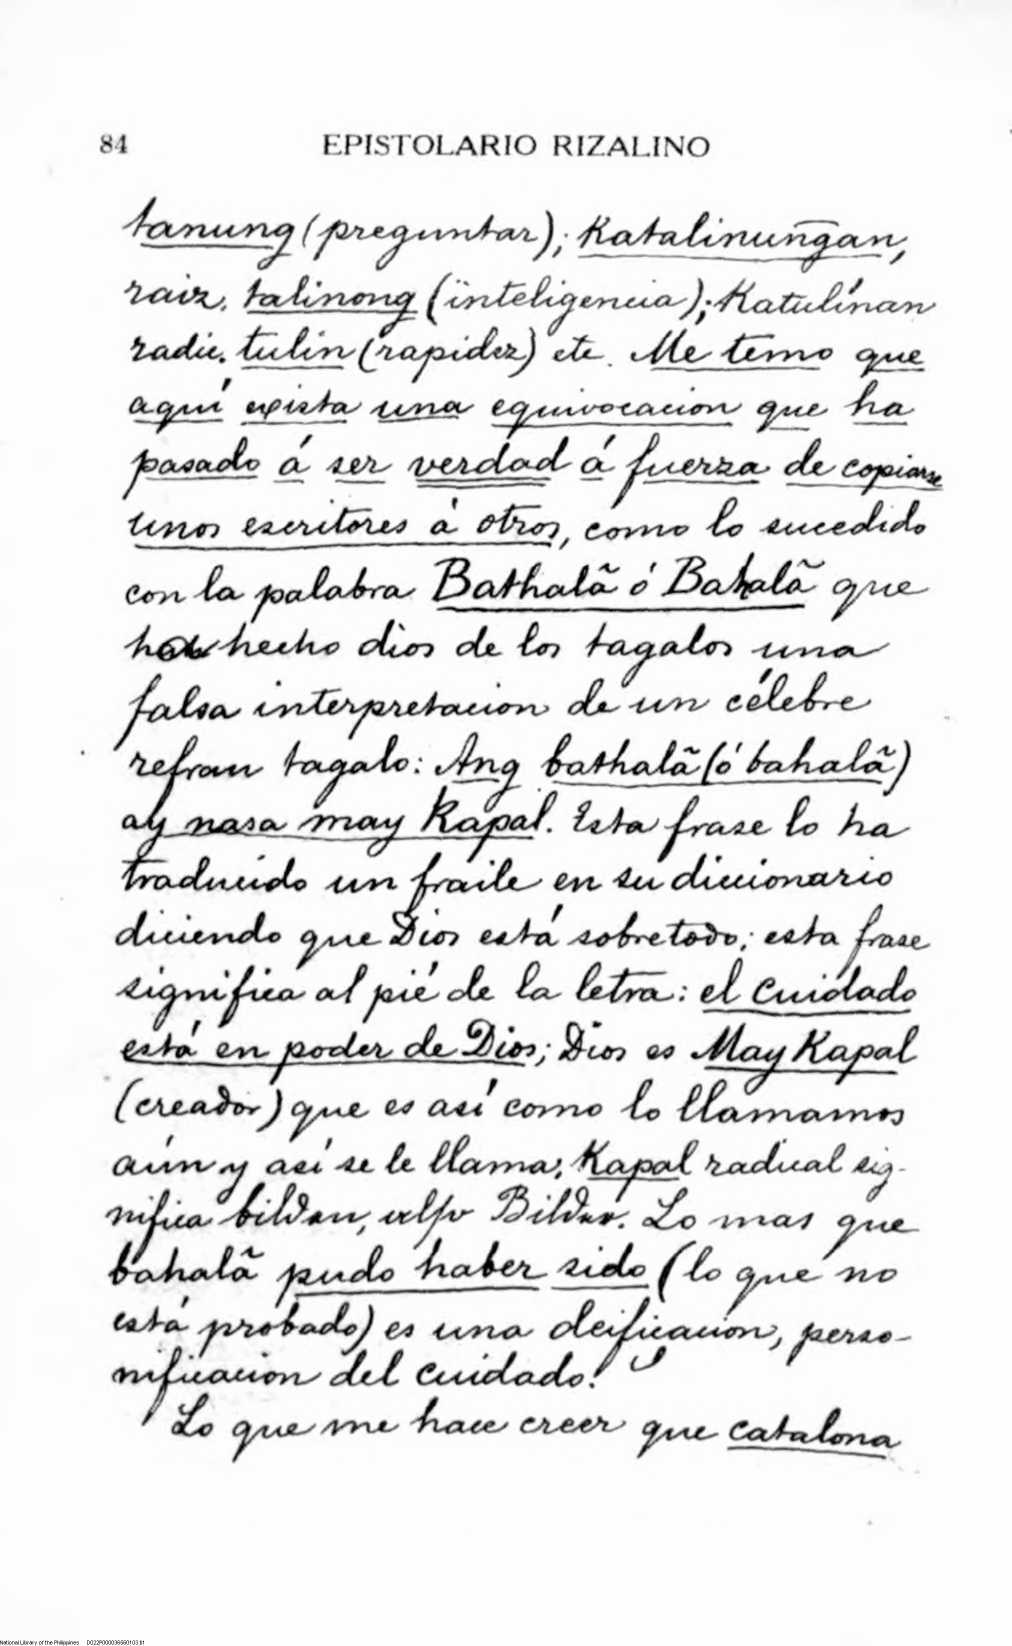 84 EPISTOLARIO RIZALINO
tanung (preguntar); Katalinun̄gan,
raiz. talinong (inteligencia); Katulínan
radic. tulin (rapidez) etc. Me temo que
aquí exista una equivocacion que ha
pasado á ser verdad á fuerza de copiarse
unos escritores á otros, como lo sucedido
con la palabra Bathalã ó Bahalã que
hecho dios de los tagalos una
falsa interpretacion de un célebre
refran tagalo: Ang bathalã (ó bahalã)
ay nasa may Kapal. Esta frase lo ha
traducido un fraile en su diccionario
diciendo que Dios está sobretodo; esta frase
significa al pié de la letra: el cuidado
está en poder de Dios; Dios es May Kapal
(creador) que es así como lo llamamos
aún y así se le llama; Kapal radical sig-
nifica bilden, also Bilder. Lo mas que
bahalã pudo haber sido (lo que no
está probado) es una deificacion, perso-
nificacion del cuidado!
Lo que me hace creer que catalona
National Library of the Philippines